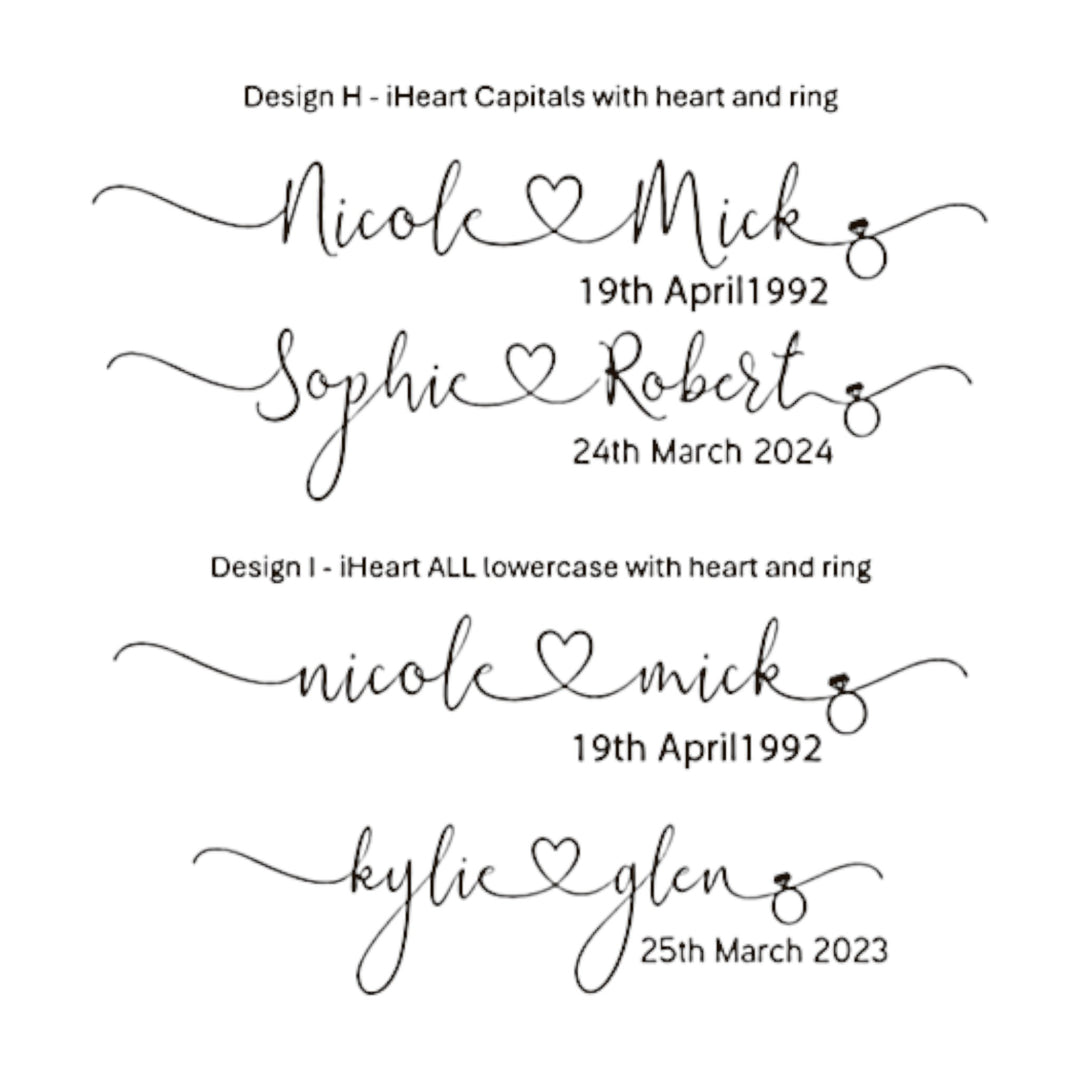 Design H - iHeart Capitals with heart and ring
Nicole Mick
19th April1992
Sophie Robert
24th March 2024
Design I - iHeart ALL lowercase with heart and ring
nicole mick
19th April1992
kylie glen
25th March 2023